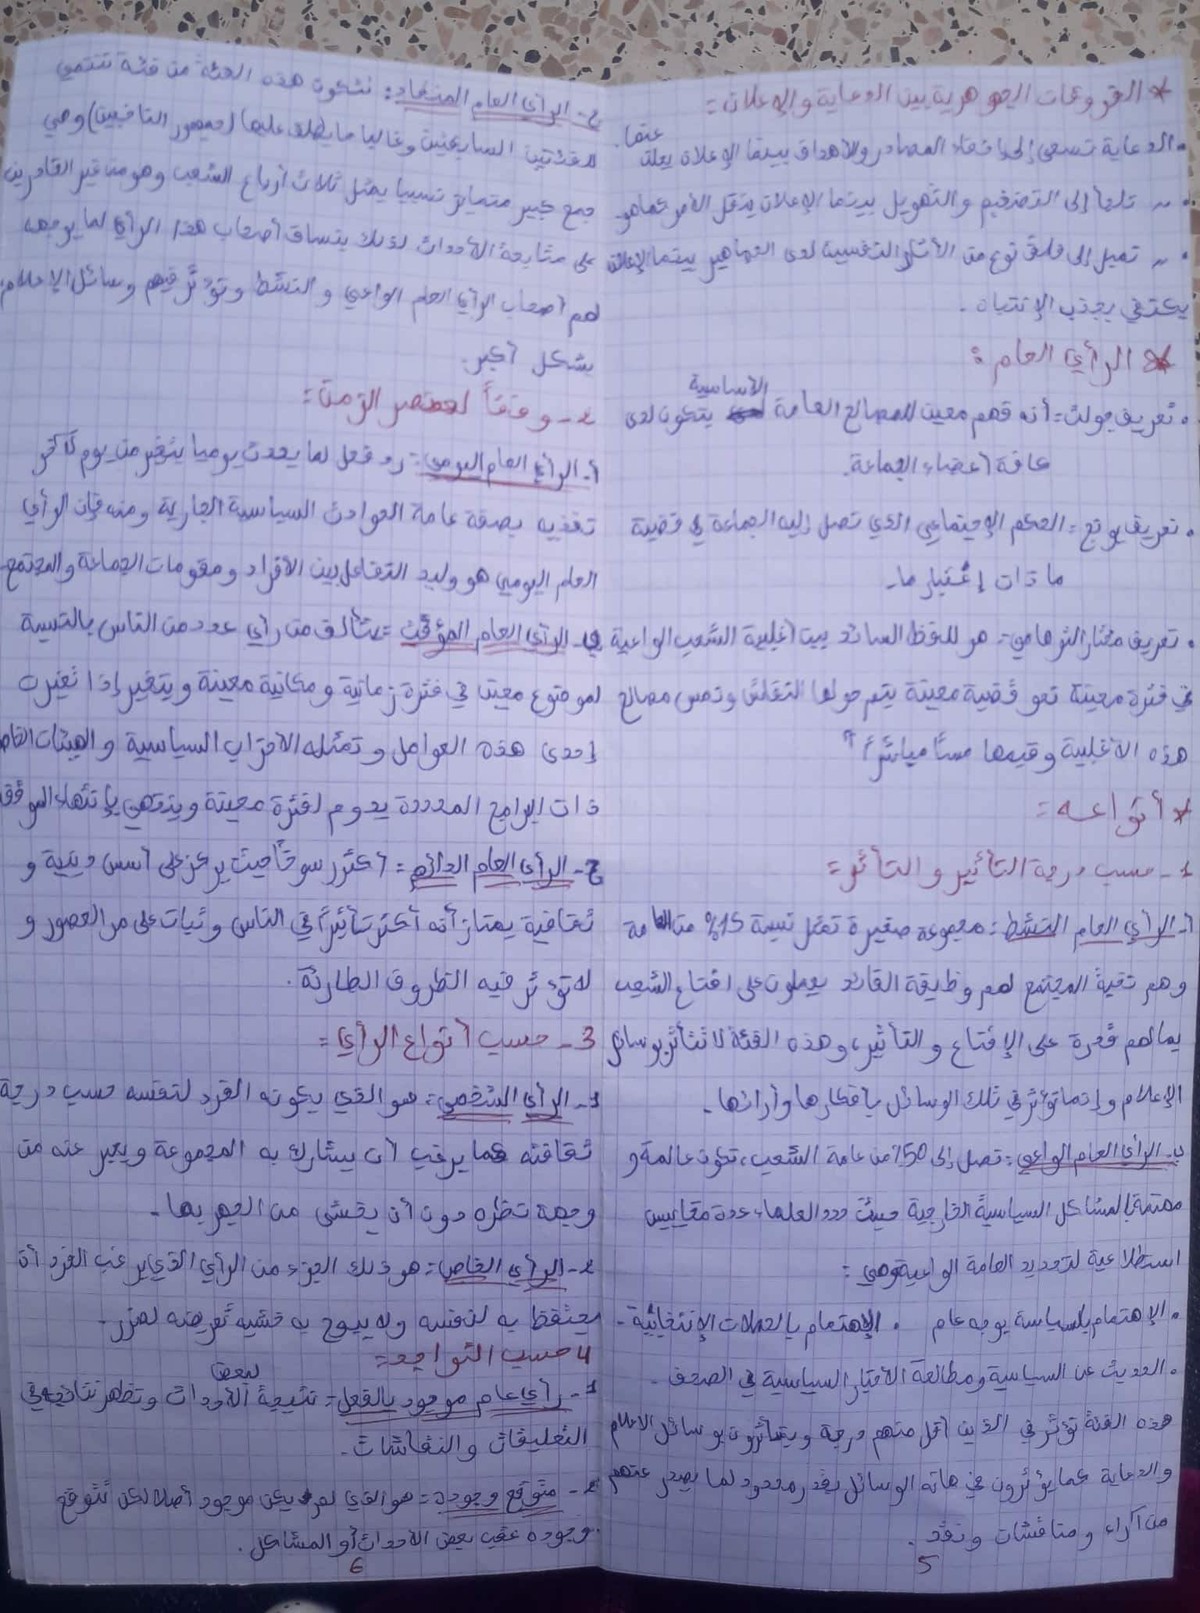 * الفروقات الجوهرية بين الدعاية والإعلان:
• الدعاية تسعى إلى إخفاء المصادر والأهداف بينما الإعلان يعلن عنها.
• ~ تلجأ إلى التضخيم والتهويل بينما الإعلان ينقل الأمر كما هو
• ~ تميل إلى خلق نوع من الأثار النفسية لدى الجماهير بينما الإعلان
يكتفي بجذب الإنتباه.
* الرأي العام:
• تعريف جولت: أنه فهم معين للمصالح العامة الأساسية يتكون لدى
كافة أعضاء الجماعة.
• تعريف يونج: الحكم الإجتماعي الذي تصل إليه الجماعة في قضية
ما ذات إعتبار ما.
• تعريف مختار التوهامي: هو السائد بين أغلبية الشعب الواعية
في فترة معينة نحو قضية معينة يتم حولها النقاش وتمس مصالح
هذه الأغلبية وقيمها مسًا مباشرًا
* أنواعه:
1- حسب درجة التأثير والتأثر:
أ- الرأي العام النشط: مجموعة صغيرة تمثل نسبة 15% من العامة
وهم نخبة المجتمع لهم وظيفة القائد يعملون على اقناع الشعب
بمالهم قدرة على الإقناع والتأثير، وهذه الفئة لا تتأثر بوسائل
الإعلام وإنما تؤثر في تلك الوسائل بأفكارها وأرائها.
ب- الرأي العام الواعي: تصل إلى 50% من عامة الشعب، تكون عالمة و
مهتمة بالمشاكل السياسية الخارجية حيث حدد العلماء عدة مقاييس
استطلاعية لتحديد العامة الواعية وهي:
• الإهتمام بالسياسة بوجه عام • الإهتمام بالحملات الإنتخابية.
• الحديث عن السياسة ومطالعة الأخبار السياسية في الصحف.
هذه الفئة تؤثر في الذين أقل منهم درجة ويتأثرون بوسائل الاعلام
والدعاية كما يؤثرون في هاته الوسائل بقدر محدود لما يصدر عنهم
من آراء ومناقشات ونقد.
5
ج- الرأي العام المنقاد: تتكون هذه الفئة من فئة تنتمي
للفئتين السابقتين وغالبا ما يطلق عليها (جمهور الناخبين) وهي
جمع كبير متمايز نسبيا يمثل ثلاث أرباع الشعب وهو من غير القادرين
على متابعة الأحداث لذلك ينساق أصحاب هذا الرأي لما يوجهه
لهم أصحاب الرأي العام الواعي والنشط وتؤثر فيهم وسائل الإعلام
بشكل أكبر.
2- وفقاً لعنصر الزمن:
أ- الرأي العام اليومي: رد فعل لما يحدث يوميا يتغير من يوم لآخر
تغذيه بصفة عامة الحوادث السياسية الجارية ومنه فإن الرأي
العام اليومي هو وليد التفاعل بين الأفراد ومقومات الجماعة والمجتمع.
ب- الرأي العام المؤقت: يتألف من رأي عدد من الناس بالنسبة
لموضوع معين في فترة زمانية ومكانية معينة ويتغير إذا تغيرت
إحدى هذه العوامل وتمثله الأحزاب السياسية والهيئات الخاصة
ذات البرامج المحددة يدوم لفترة معينة وينتهي بإنتهاء الموقف
ج- الرأي العام الدائم: أكثر رسوخًا حيث يركز على أسس دينية و
ثقافية يمتاز أنه أكثر تأثيرًا في الناس وثبات على مر العصور و
لا تؤثر فيه الظروف الطارئة.
3- حسب أنواع الرأي:
1- الرأي الشخصي: هو الذي يكونه الفرد لنفسه حسب درجة
ثقافته كما يرغب أن يشارك به المجموعة ويعبر عنه من
وجهة نظره دون أن يخشى من الجهر بها.
2- الرأي الخاص: هو ذلك الجزء من الرأي الذي يرغب الفرد أن
يحتفظ به لنفسه ولا يبوح به خشية تعريضه لضرر.
4 حسب التواجد:
1- رأي عام موجود بالفعل: نتيجة لبعض الأحداث وتظهر نتائجه في
التعليقات والنقاشات.
2- متوقع وجوده: هو الذي لم يكن موجود أصلا لكن نتوقع
وجوده عقب بعض الأحداث أو المشاكل.
6